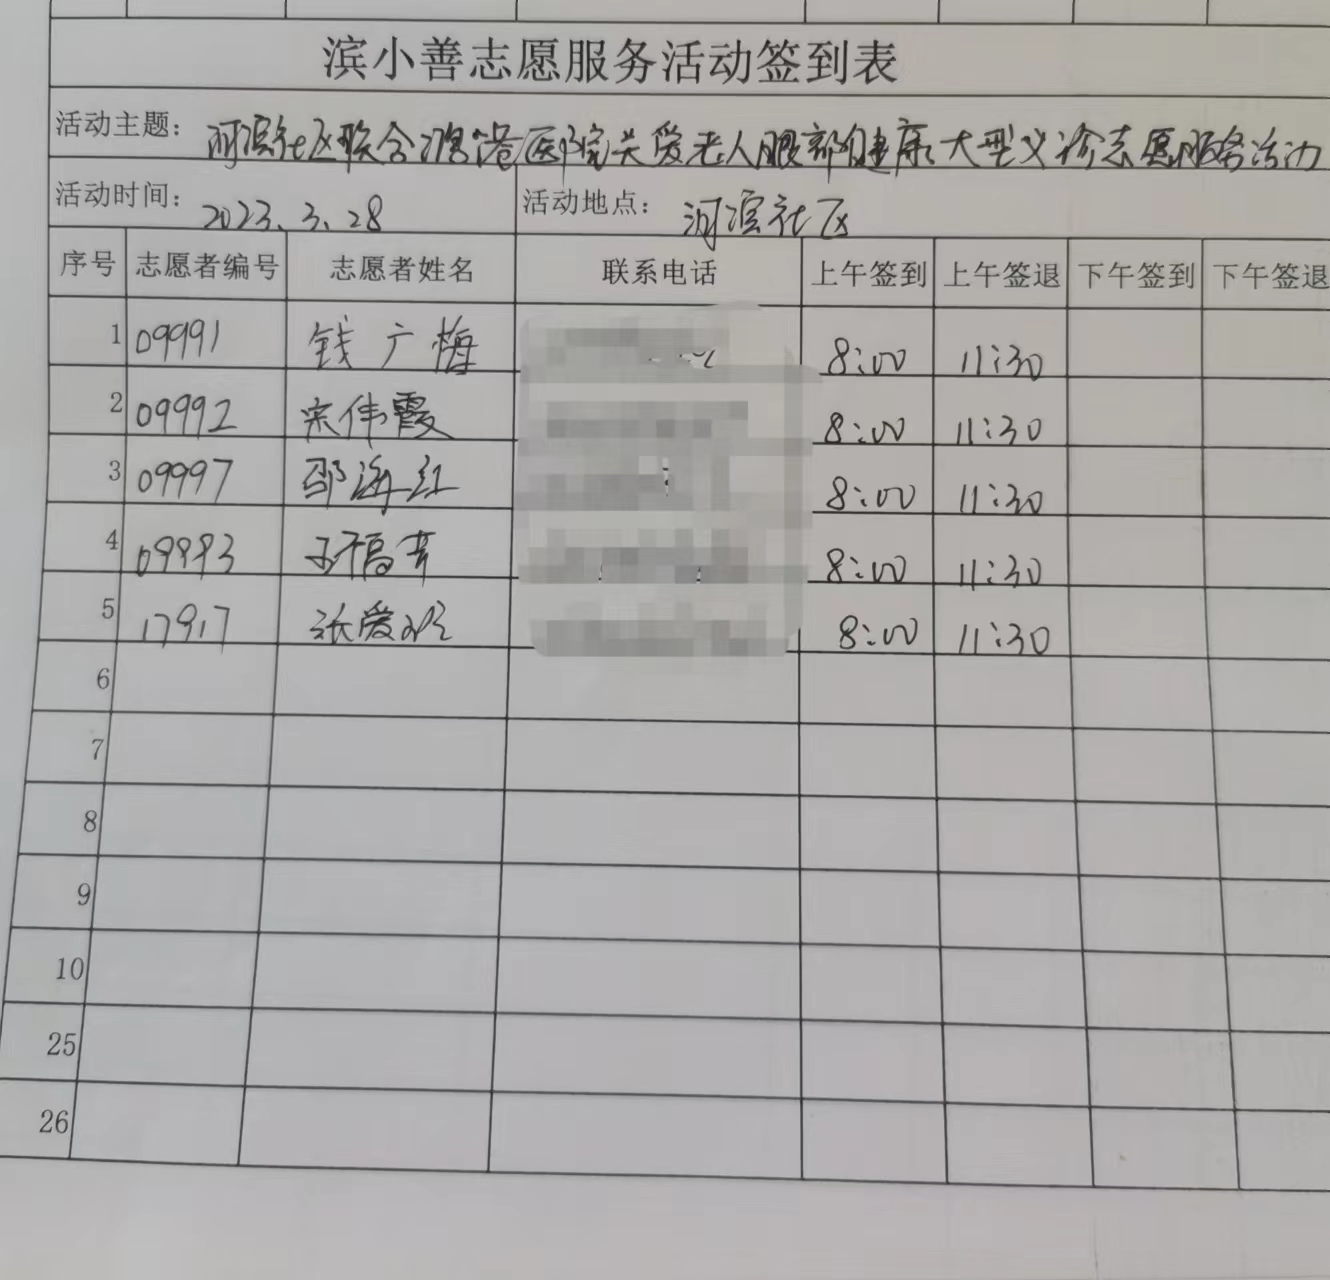 滨小善志愿服务活动签到表
活动主题： 河滨社区联合滨港医院关爱老人眼部健康大型义诊志愿服务活动
活动时间： 2023.3.28 活动地点： 河滨社区
序号 志愿者编号 志愿者姓名 联系电话 上午签到 上午签退 下午签到 下午签退
1 09991 钱广梅 8:00 11:30
2 09992 宋伟霞 8:00 11:30
3 09997 邵海红 8:00 11:30
4 09993 8:00 11:30
5 17917 张爱 8:00 11:30
6
7
8
9
10
25
26